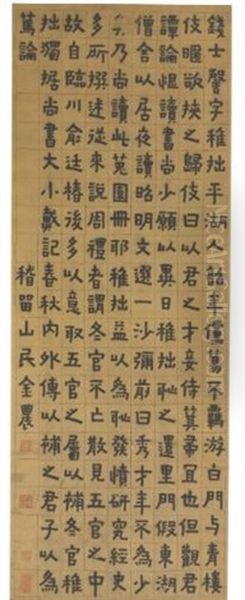 錢士馨字稚拙平湖人韶年儻蕩不羈游白門与青樓
伎暱欲挾之歸伎曰以君之才妾侍箕帚宜也但觀君
譚論恨讀書尚少願以異日稚拙恥之還里門假東湖
僧舍以居夜讀昭明文選一沙彌前曰秀才年不為少
矣乃尚讀此菟園冊耶稚拙益以為恥發憤研究經史
多所撰述從來說周禮者謂冬官不亡散見五官之中
故自臨川俞廷椿後多以意取五官之屬以補冬官稚
拙獨据尚書大小戴記春秋內外傳以補之君子以為
篤論 稽留山民金農